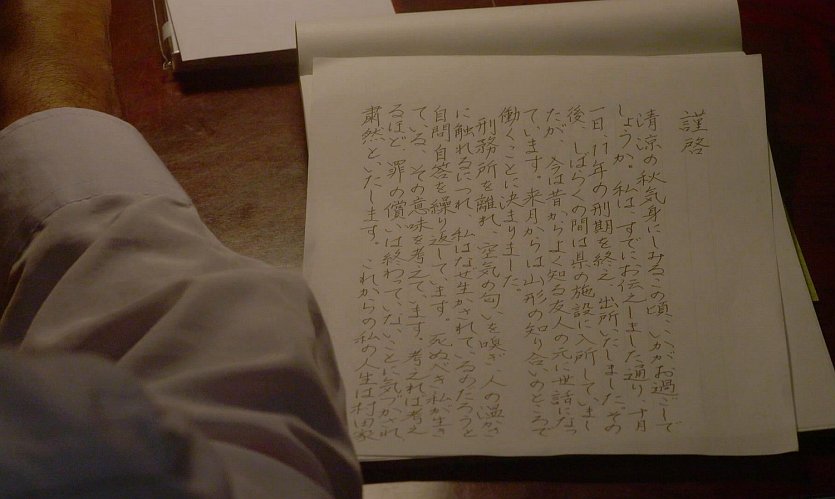 謹啓
清涼の秋気身にしみるこの頃、いかがお過ごしで
しょうか。私は、すでにお伝えしました通り、十月
一日、11年の刑期を終え、出所いたしました。その
後、しばらくの間は県の施設に入所していまし
たが、今は昔からよく知る友人の元に世話になっ
ています。来月からは山形の知り合いのところで
働くことに決まりました。
刑務所を離れ、空気の匂いを嗅ぎ、人の温かさ
に触れるにつれ、私はなぜ生かされているのだろうと
自問自答を繰り返しています。死ぬべき私が生き
ている、その意味を考えています。考えれば考え
るほど、罪の償いは終わっていないことに気づかされ
粛然といたします。これからの私の人生は村田家